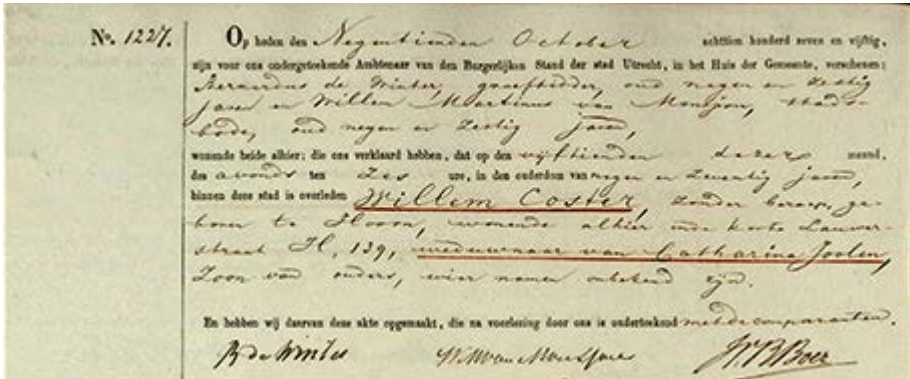 No. 1227.
Op heden den Negentienden October achttien honderd zeven en vijftig,
zijn voor ons ondergeteekende Ambtenaar van den Burgerlijken Stand der stad Utrecht, in het Huis der Gemeente, verschenen:
Bernardus de Winter, oud negen en zestig
jaren en Willem Martinus van Monsjou, stads-
bode, oud negen en zestig jaren,
wonende beide alhier; die ons verklaard hebben, dat op den vijftienden dezer maand,
des avonds ten zes ure, in den ouderdom van negen en zeventig jaren,
binnen deze stad is overleden Willem Coster, zonder beroep, ge-
boren te Hoorn, wonende alhier in de korte Lauwer-
straat H, 139, weduwnaar van Catharina Joolen,
Zoon van ouders, wier namen onbekend zijn.
En hebben wij daarvan deze akte opgemaakt, die na voorlezing door ons is onderteekend met de comparanten.
B de Winter W M van Monsjou